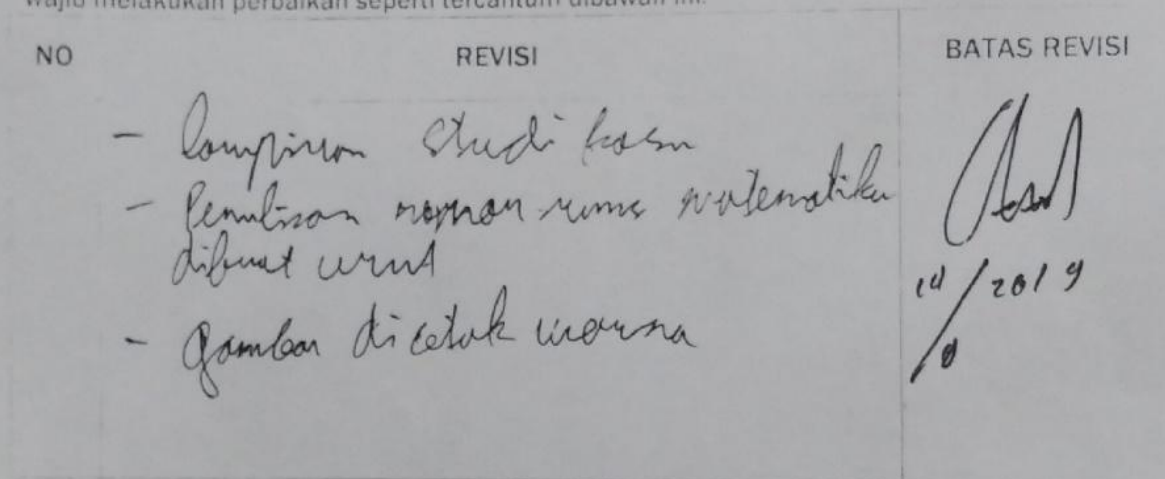 wajib melakukan perbaikan seperti tercantum dibawah ini.
NO REVISI BATAS REVISI
- Lampiran studi kasus
- Penulisan nomor rumus matematika
dibuat urut
- Gambar dicetak warna
/ 2019